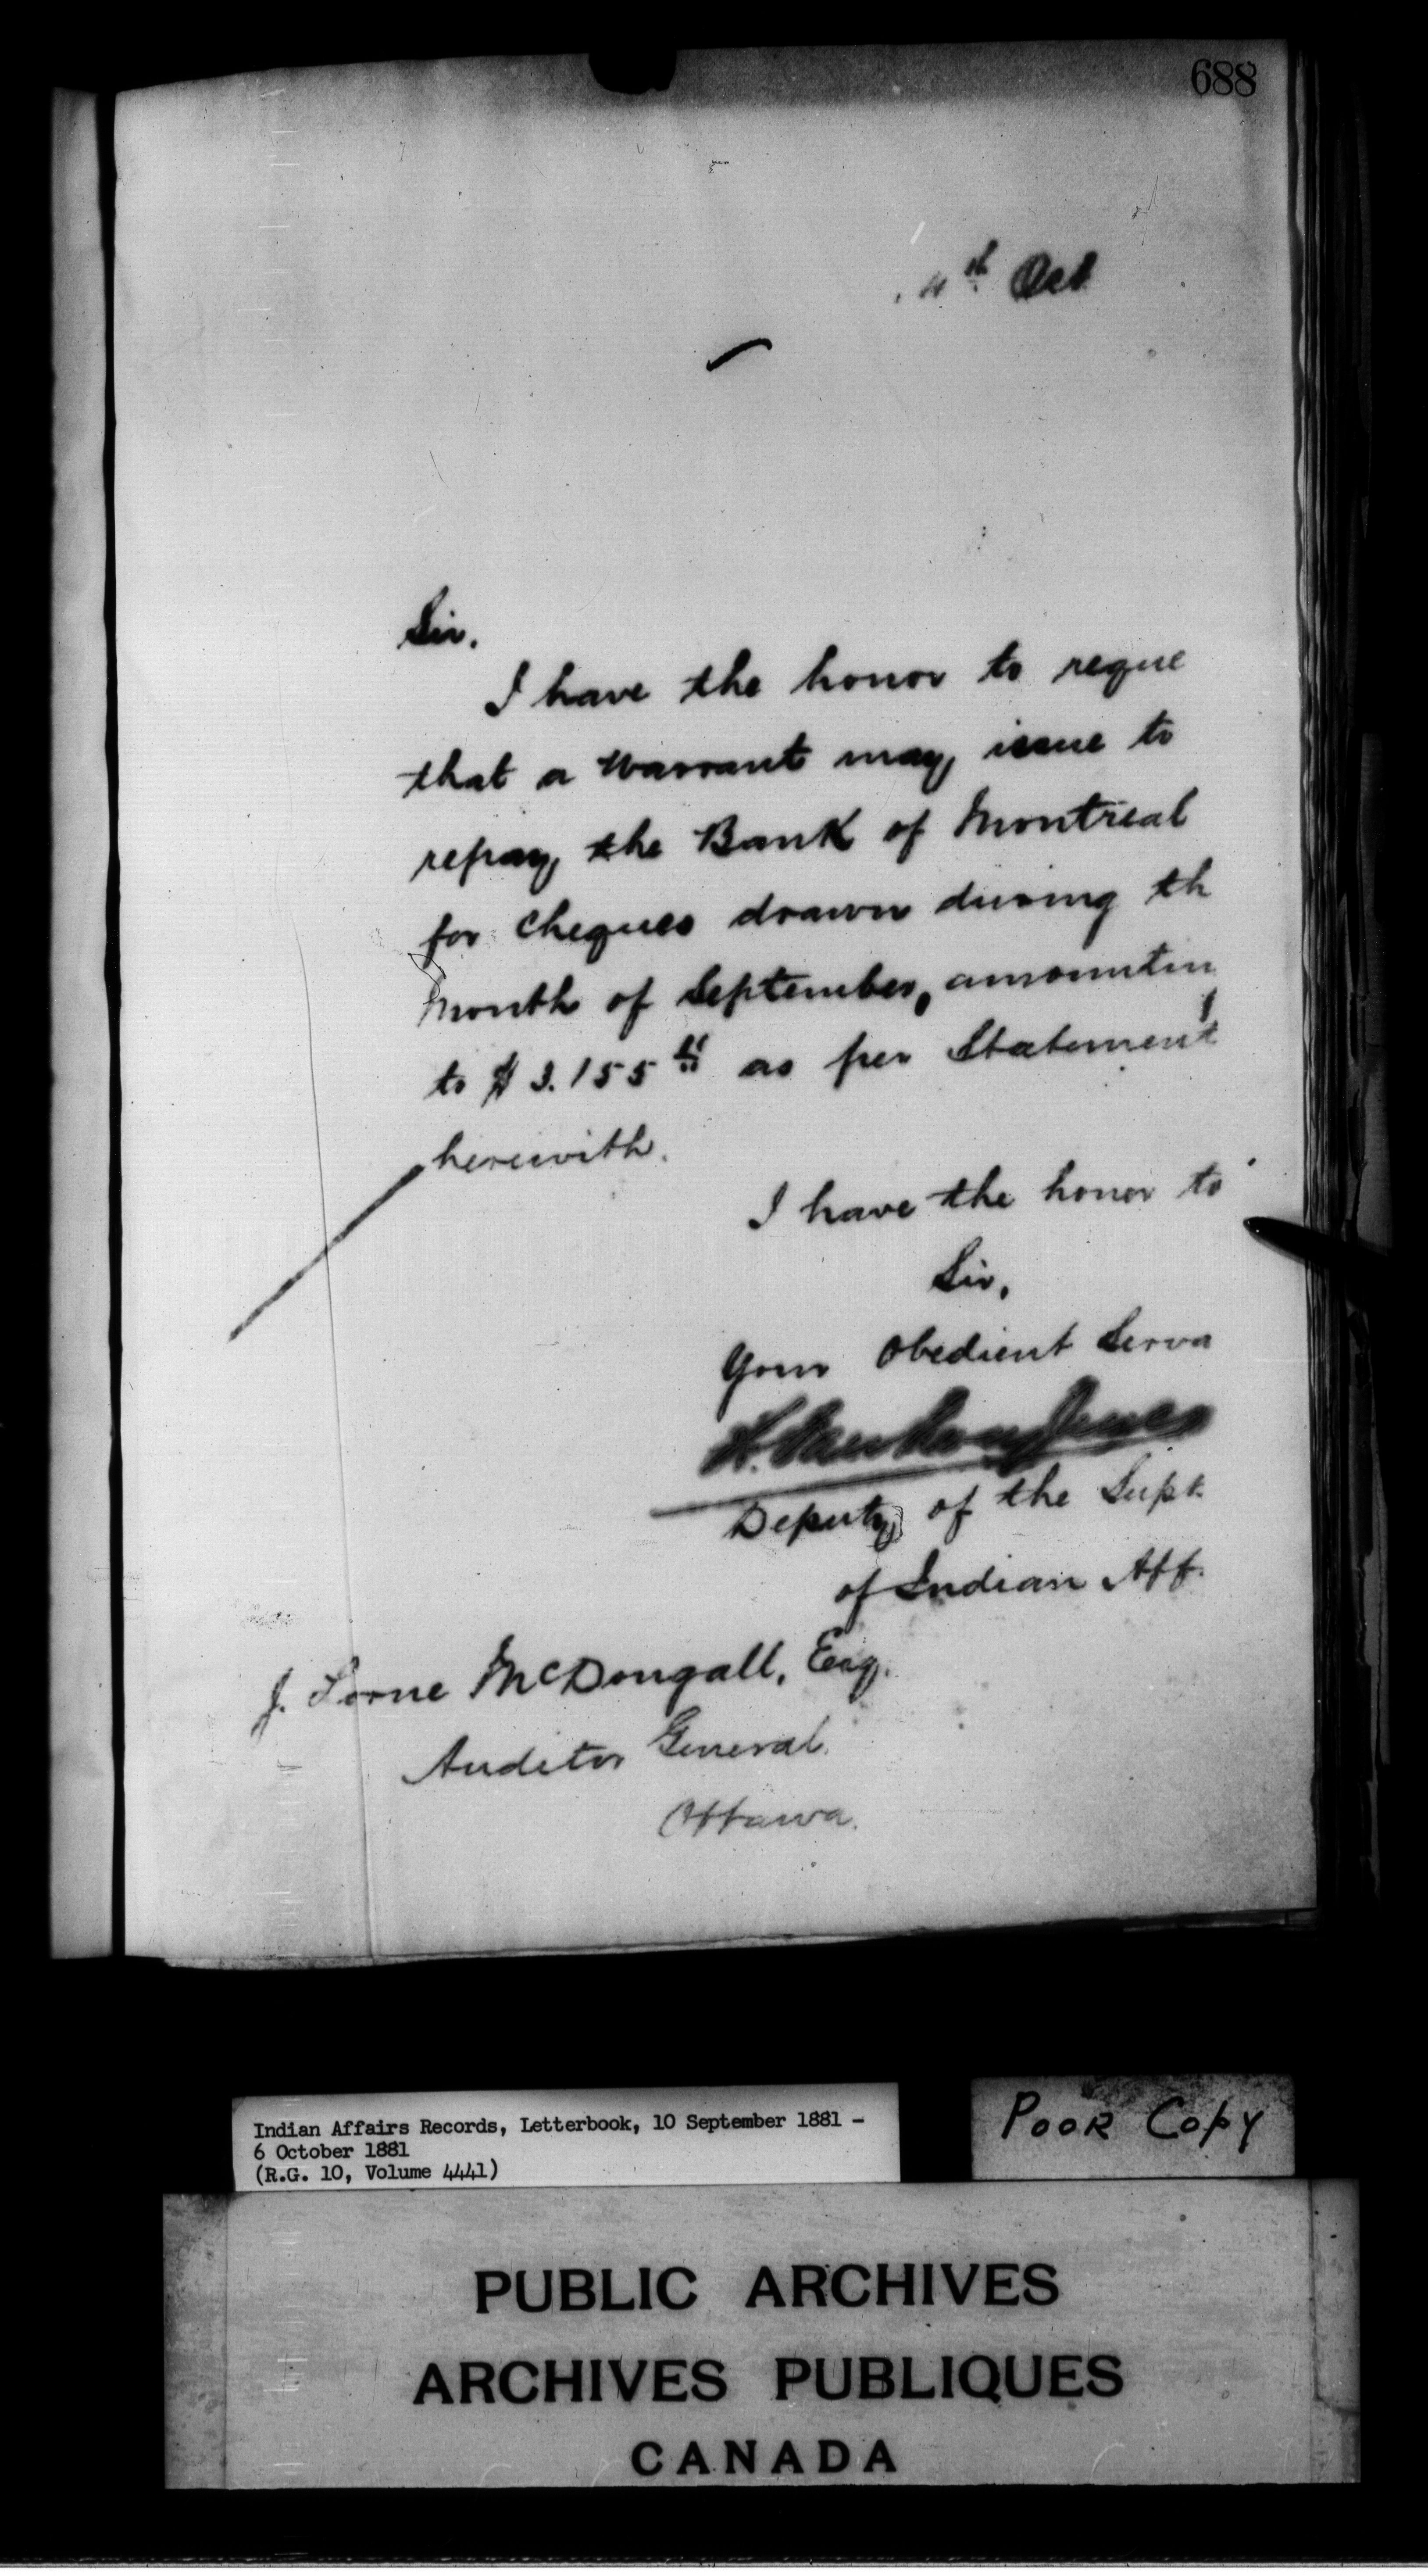 688
4th Oct
Sir.
I have the honor to reque
that a Warrant may issue to
repay the Bank of Montreal
for Cheques drawn during th
Month of September, amountin
to $3.155 as per Statement
herewith.
I have the honor to
Sir,
Your Obedient Serva
Deputy of the Supt.
of Indian Aff.
J. Lorne McDougall, Esq.
Auditor General.
Ottawa.
Indian Affairs Records, Letterbook, 10 September 1881 -
6 October 1881
(R.G. 10, Volume 4441)
POOR COPY
PUBLIC ARCHIVES
ARCHIVES PUBLIQUES
CANADA